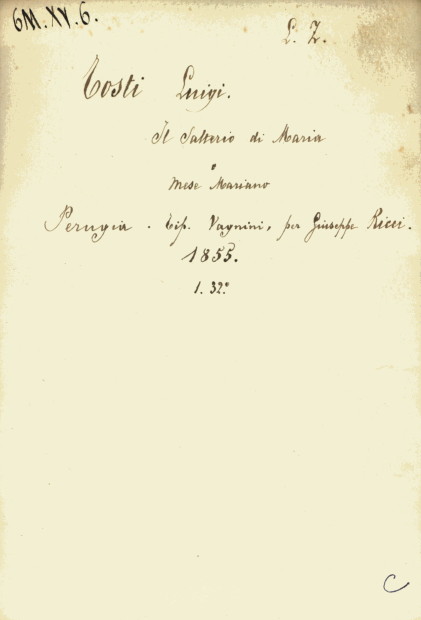 6M.XV.6.
L. Z.
Tosti Luigi.
Il Salterio di Maria
o
Mese Mariano
Perugia. Tip. Vagnini, per Giuseppe Ricci.
1855.
1. 32.º
C